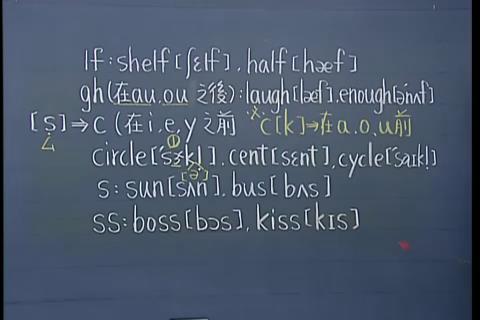 lf : shelf [ʃɛlf] , half [hæf]
gh (在au, ou 之後) : laugh [læf] . enough [ə'nʌf]
[s] ⇒ c (在 i , e , y 之前 ※ c [k] ⇒ 在 a . o . u 前
ㄙ ①
circle ['sɝk!] . cent [sɛnt] , cycle ['saɪk!]
[ɚ]
s : sun [sʌn] , bus [bʌs]
ss : boss [bɔs] , kiss [kɪs]